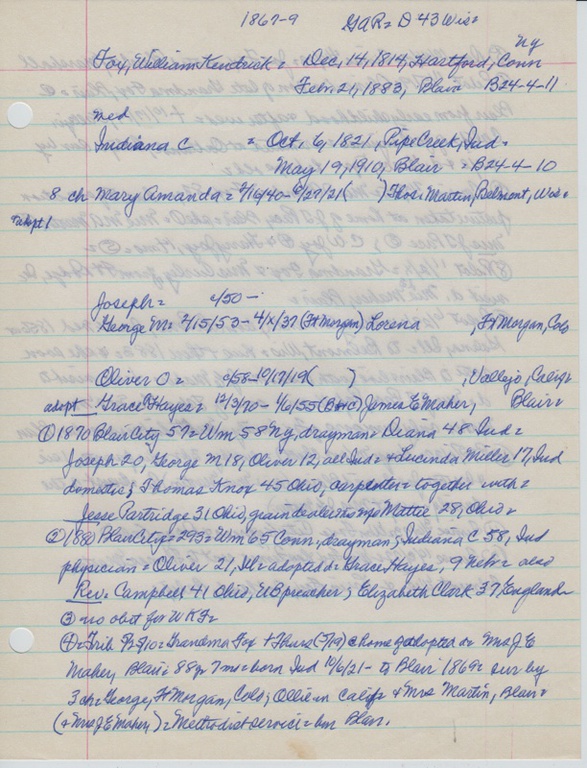 1867-9 GAR= D 43 Wis=
NY
Fox, William Kendrick = Dec, 14, 1814, Hartford, Conn
Febr. 21, 1883, Blair B24-4-11
med
Indiana C = Oct, 6, 1821, Pipe Creek, Ind=
May 19, 1910, Blair = B24-4-10
8 ch Mary Amanda = 2/16/40- /29/21( ) Thos. Martin, Belmont, Wis=
+adopt 1
Joseph = c/50 -
George M= 2/15/53- 4/x/37 (Ft Morgan) Lorena , Ft Morgan, Colo
Oliver O = c/58-10/17/19( ) , Vallejo, Calif=
adopt Grace Hayes = 12/3/70- 1/6/55 (B+C) James E Maher, Blair=
① 1870 Blair City 57 = Wm 58 NY, drayman = Diana 48 Ind=
Joseph 20, George M 18, Oliver 12, all Ind= + Lucinda Miller 17, Ind
domestic; Thomas Knox 45 Ohio, carpenter = together with =
Jesse Partridge 31 Ohio, grain dealer Mattie 28, Ohio =
② 1880 Blair City = 295 = Wm 65 Conn, drayman; Indiana C 58, Ind
physician = Oliver 21, Ill = adopted d= Grace Hayes, 9 Nebr = also
Rev = Campbell 41 Ohio, UB preacher; Elizabeth Clark 37, England=
③ no obit for WKF=
④ = Trib 10 = Grandma Fox + Thurs (5/19) @ home of adopted d= Mrs J E
Maher, Blair = 88 y 7 ms = born Ind 10/6/21 - to Blair 1869 = sur by
3 ch = George, Ft Morgan, Colo; Ollie in Calif= + Mrs Martin, Blair=
(+ Mrs J E Maher) = Methodist service = bur Blair.